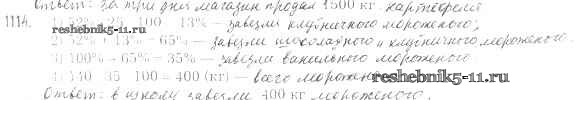 Ответ: за три дня магазин продал 1500 кг картофеля
1114. 1) 52% · 25 : 100 = 13% – завезли клубничного мороженого;
2) 52% + 13% = 65% – завезли шоколадного и клубничного мороженого.
3) 100% – 65% = 35% – завезли ванильного мороженого
4) 140 : 35 · 100 = 400 (кг) – всего
Ответ: в школу завезли 400 кг мороженого.
reshebnik5-11.ru
reshebnik5-11.ru